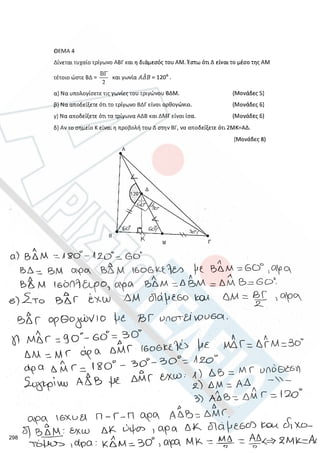 ΘΕΜΑ 4
Δίνεται τυχαίο τρίγωνο ΑΒΓ και η διάμεσός του ΑΜ. Έστω ότι Δ είναι το μέσο της ΑΜ
τέτοιο ώστε ΒΔ = ΒΓ/2 και γωνία ΑΔ̂Β = 120°.
α) Να υπολογίσετε τις γωνίες του τριγώνου ΒΔΜ. (Μονάδες 5)
β) Να αποδείξετε ότι το τρίγωνο ΒΔΓ είναι ορθογώνιο. (Μονάδες 6)
γ) Να αποδείξετε ότι τα τρίγωνα ΑΔΒ και ΔΜΓ είναι ίσα. (Μονάδες 6)
δ) Αν το σημείο Κ είναι η προβολή του Δ στην ΒΓ, να αποδείξετε ότι 2ΜΚ=ΑΔ.
(Μονάδες 8)
Α
Δ
120°
60°
60°
30°
Β
Κ
Μ
Γ
α) ΒΔ̂Μ = 180° - 120° = 60°
ΒΔ = ΒΜ αρα ΒΔ̂Μ ισοσκελές με ΒΔ̂Μ = 60°, αρα
ΒΔ̂Μ ισόπλευρο, αρα ΒΔ̂Μ = ΔΒ̂Μ = ΔΜ̂Β = 60°.
β) Στο ΒΔ̂Γ έχω ΔΜ διάμεσο και ΔΜ = ΒΓ/2, αρα
ΒΔ̂Γ ορθογώνιο με ΒΓ υποτείνουσα.
γ) ΜΔ̂Γ = 90° - 60° = 30°
ΔΜ = ΜΓ αρα ΔΜ̂Γ ισοσκελές με ΜΔ̂Γ = ΔΓ̂Μ = 30°
αρα ΔΜ̂Γ = 180° - 30° - 30° = 120°
Συγκρίνω ΑΔ̂Β με ΔΜ̂Γ έχω: 1) ΔΒ = ΜΓ υπόθεση
2) ΔΜ = ΑΔ -//-
3) ΑΔ̂Β = ΔΜ̂Γ = 120°
αρα ισχύει Π-Γ-Π αρα ΑΔ̂Β = ΔΜ̂Γ.
δ) ΒΔ̂Μ: έχω ΔΚ ύψος, αρα ΔΚ διάμεσος και διχο-
τόμος, αρα: ΚΔ̂Μ = 30°, αρα ΜΚ = ΜΔ/2 = ΑΔ/2 ⇔ 2ΜΚ = ΑΔ
298